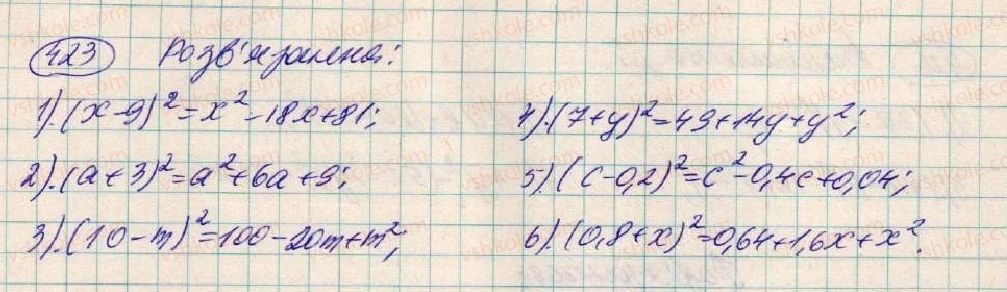 423 Розв'язання:
1).(x-9)²=x²-18x+81;
2).(a+3)²=a²+6a+9;
3).(10-m)²=100-20m+m²;
4).(7+y)²=49+14y+y²;
5)(c-0,2)²=c²-0,4c+0,04;
6).(0,8+x)²=0,64+1,6x+x².